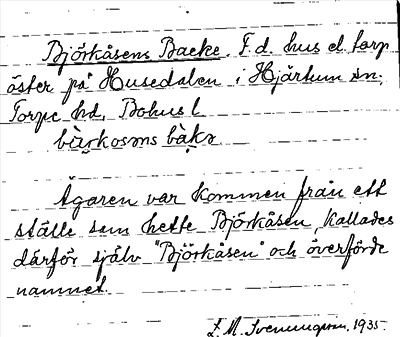 Björkåsens Backe. F. d. hus el. torp
öster på Husedalen i Hjärtum sn.,
Torpe hd, Bohus l.
bärkosəns bakə
Ägaren var kommen från ett
ställe som hette Björkåsen, kallades
därför själv "Björkåsen" och överförde
namnet.
E. M. Svenungsson, 1935.